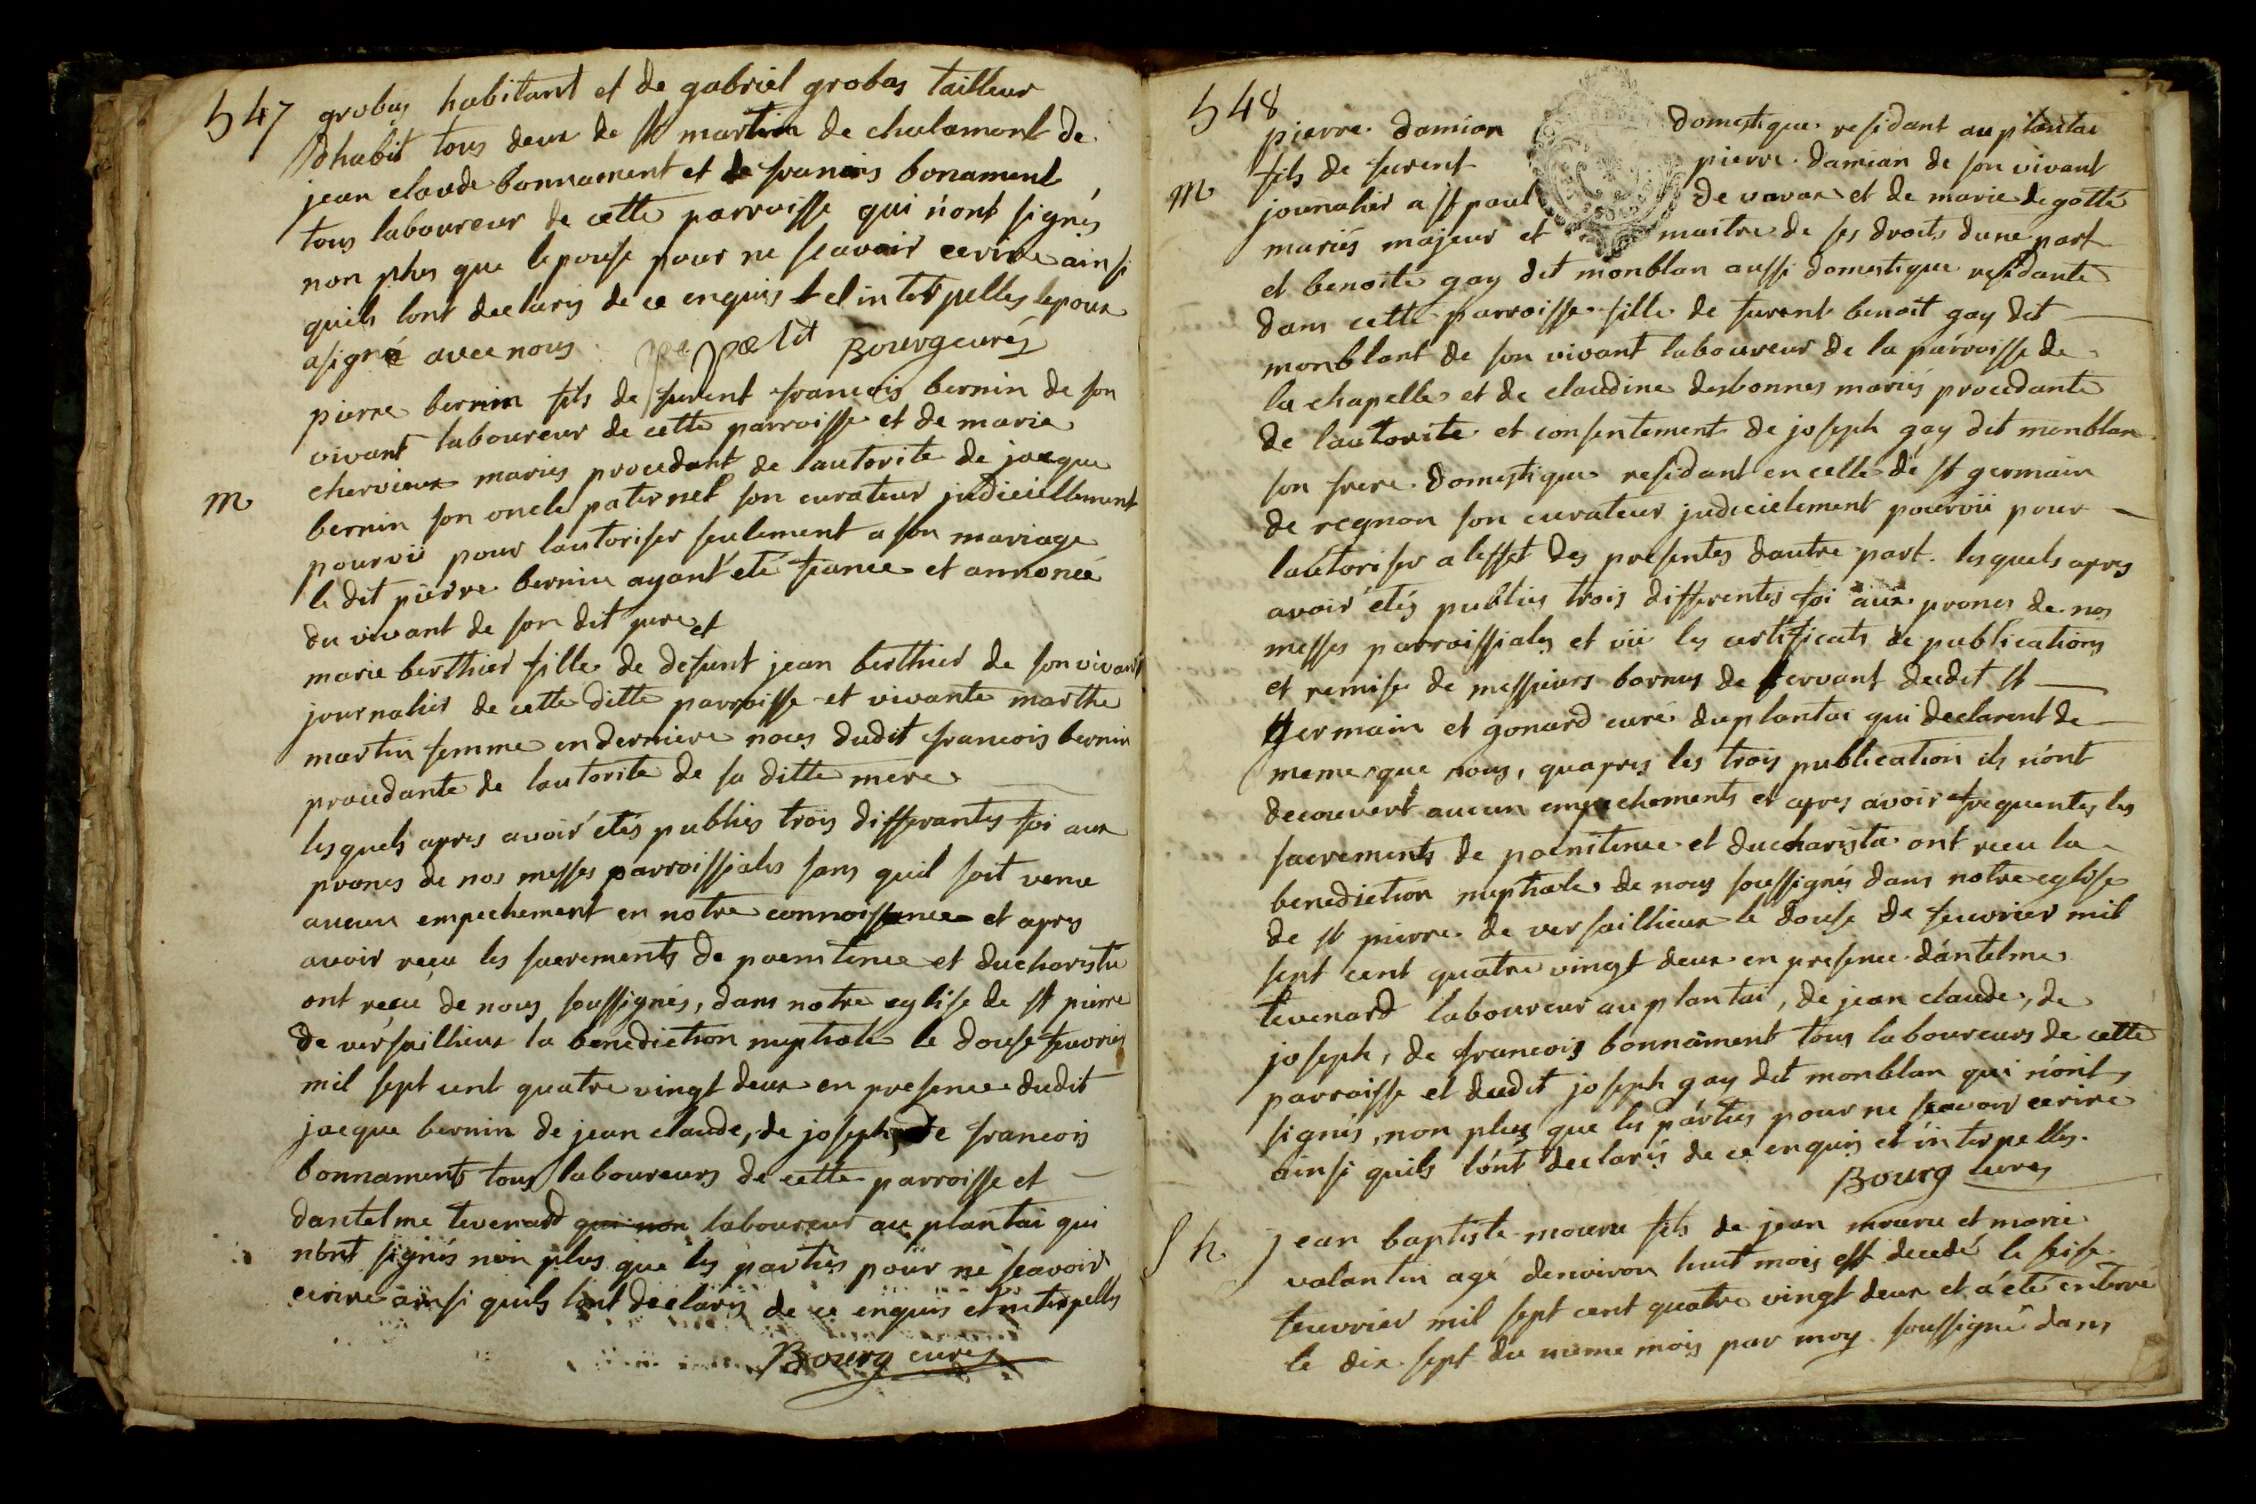 547
grobas habitant et de gabriel grobas tailleur
dhabit tous deux de st martin de chalamont de
jean claude bonnament et de francois bonament
tous laboureur de cette parroisse qui n'ont signés
non plus que lepouse pour ne scavoir ecrire ainsi
quils lont declarés de ce enquis et interpellés lepoux
asigné avec nous Bourg curé
pierre bernin fils de furent francois bernin de son
vivant laboureur de cette parroisse et de marie
chervieux mariés procedant de lautorite de jacque
m
bernin son oncle paternel son curateur judiciellement
pourvû pour lautoriser seulement a son mariage
le dit pierre bernin ayant été fiancé et annoncé
du vivant de son dit pere et
marie berthier fille de defunt jean berthier de son vivant
journalier de cette ditte parroisse et vivante marthe
martin femme en derniere noces dudit francois bernin
procedante de lautorite de sa ditte mere
lesquels apres avoir etés publiés trois differantes foi aux
prones de nos messes parroissiales sans quil soit venu
aucun empechement en notre connoissance et apres
avoir reçu les sacrements de poenitence et ducharistie
ont reçu de nous soussignés, dans notre eglise de st pierre
de versaillieux la benediction nuptiale le douse fevrier
mil sept cent quatre vingt deux en presence dudit
jacque bernin de jean claude, de joseph, de francois
bonnaments tous laboureurs de cette parroisse et
dantelme tevenard qui non laboureur au plantai qui
n'ont signés non plus que les parties pour ne scavoir
ecrire ainsi quils lont declarés de ce enquis et interpellés
Bourg curé
548
pierre damian domestique residant au plantai
fils de furent pierre damian de son vivant
m
journalier a st paul de varax et de marie degotte
mariés majeur et maitre de ses droits dune part
et benoite gay dit monblan aussi domestique residante
dans cette parroisse fille de furent benoit gay dit
monblant de son vivant laboureur de la parroisse de
la chapelle et de claudine desbonnes mariés procedante
de lautorite et consentement de joseph gay dit monblan
son frere domestique residant en celle de st germain
de regnon son curateur judicielement pourvû pour
lautoriser a leffet des presentes dautre part. lesquels apres
avoir etés publiés trois differentes foi aux prones de nos
messes parroissiales et vû les certificats de publications
et remise de messieurs bornus de servant dudit st
germain et gonard curé du plantai qui declarent de
meme que nous, quapres les trois publication ils n'ont
decouvert aucun empechements et apres avoir frequentés les
sacrements de poenitence et ducharistie ont recu la
benediction nuptiale de nous soussignés dans notre eglise
de st pierre de versaillieux le douse de feuvrier mil
sept cent quatre vingt deux en presence dantelme
tevenard laboureur au plantai, de jean claude, de
joseph, de francois bonnament tous laboureurs de cette
parroisse et dudit joseph gay dit monblan qui n'ont
signés, non plus que les parties pour ne scavoir ecrire
ainsi quils l'ont declarés de ce enquis et interpellés.
Bourg curé
S h
jean baptiste mouru fils de jean mouru et marie
valantin agé denviron huit mois est decedé le seise
feuvrier mil sept cent quatre vingt deux et a été enterré
le dix sept du meme mois par moy soussigné dans